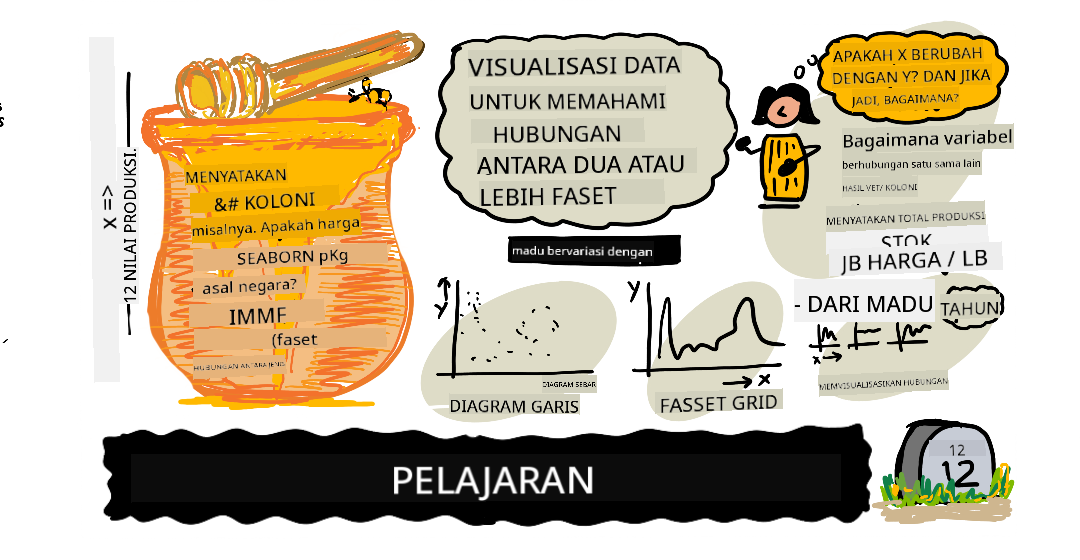 X =>
12 NILAI PRODUKSI.
MENYATAKAN
&# KOLONI
misalnya. Apakah harga
SEABORN pKg
asal negara?
IMMF
(faset
HUBUNGAN ANTARA JENIS
VISUALISASI DATA
UNTUK MEMAHAMI
HUBUNGAN
ANTARA DUA ATAU
LEBIH FASET
madu bervariasi dengan
Y
DIAGRAM SEBAR
DIAGRAM GARIS
Y
X
FASSET GRID
APAKAH X BERUBAH
DENGAN Y? DAN JIKA
JADI, BAGAIMANA?
Bagaimana variabel
berhubungan satu sama lain
HASIL VET/ KOLONI
MENYATAKAN TOTAL PRODUKSI
STOK
JB HARGA / LB
- DARI MADU
TAHUN
X
MEMVISUALISASIKAN HUBUNGAN
PELAJARAN
12
12